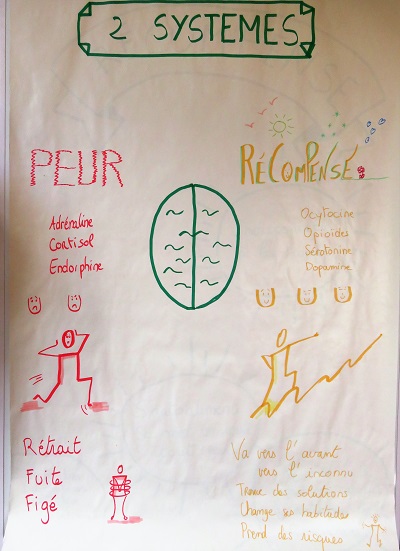 2 SYSTEMES
PEUR
Adrénaline
Cortisol
Endorphine
Rétrait
Fuite
Figé
RÉCOMPENSE
Ocytocine
Opioides
Sérotonine
Dopamine
Va vers l'avant
vers l'inconnu
Trouve des solutions
Change ses habitudes
Prend des risques